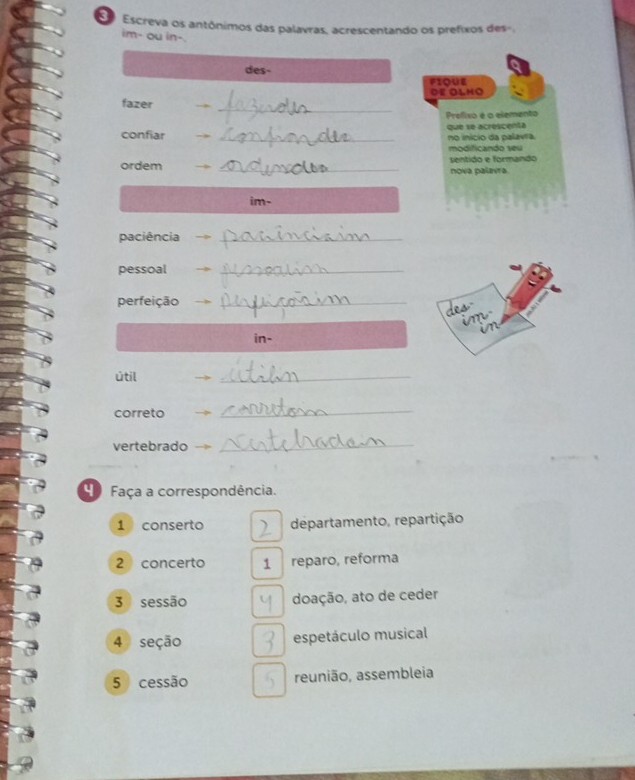 3 Escreva os antônimos das palavras, acrescentando os prefixos des-,
im- ou in-.
des-
fazer → fazerdes
confiar → confiardes
ordem → ordemdes
im-
paciência → paciênciaim
pessoal → pessoalim
perfeição → perfeiçãoim
in-
útil → útilin
correto → corretoin
vertebrado → vertebradoin
FIQUE
DE OLHO
Prefixo é o elemento
que se acrescenta
no início da palavra,
modificando seu
sentido e formando
nova palavra.
des-
im-
in
4 Faça a correspondência.
1 conserto 2 departamento, repartição
2 concerto 1 reparo, reforma
3 sessão 4 doação, ato de ceder
4 seção 3 espetáculo musical
5 cessão 5 reunião, assembleia